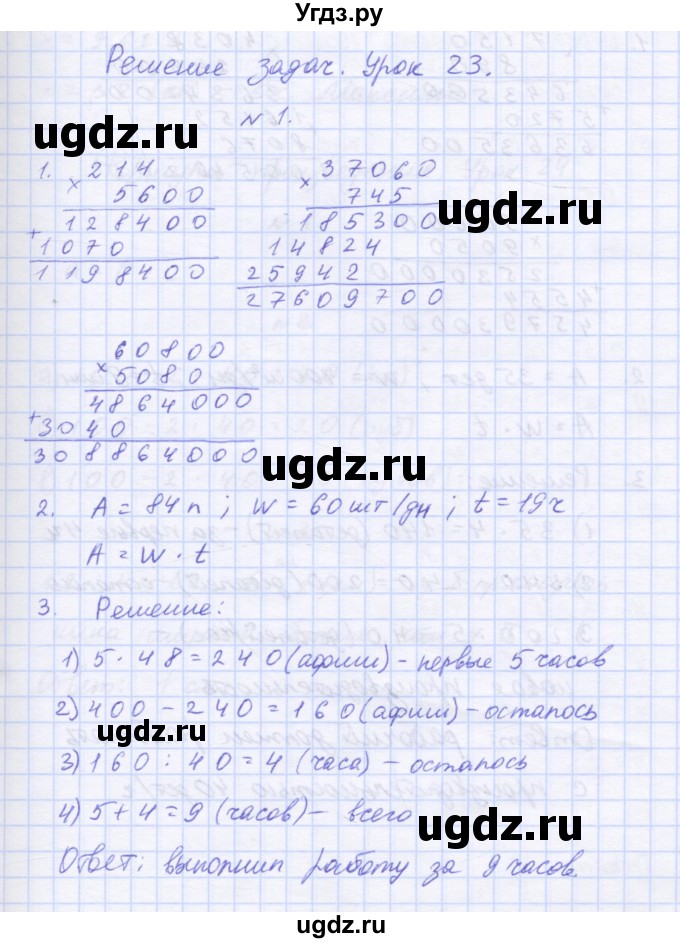 Угдз.ру
Решение задач. Урок 23.
№ 1.
ugdz.ru ugdz.ru
1. × 214 × 37060
5600 745
128400 185300
+ 1070 14824
1198400 25942
27609700
60800
× 5080
4864000
+ 3040
308864000
ugdz.ru
2. A = 84п ; w = 60 шт/дн ; t = 19ч
A = w · t
3. Решение:
1) 5 · 48 = 240 (афиш) – первые 5 часов
2) 400 – 240 = 160 (афиш) – осталось
ugdz.ru
3) 160 : 40 = 4 (часа) – осталось
4) 5 + 4 = 9 (часов) – всего
ugdz.ru
Ответ: выполнил работу за 9 часов.
ugdz.ru